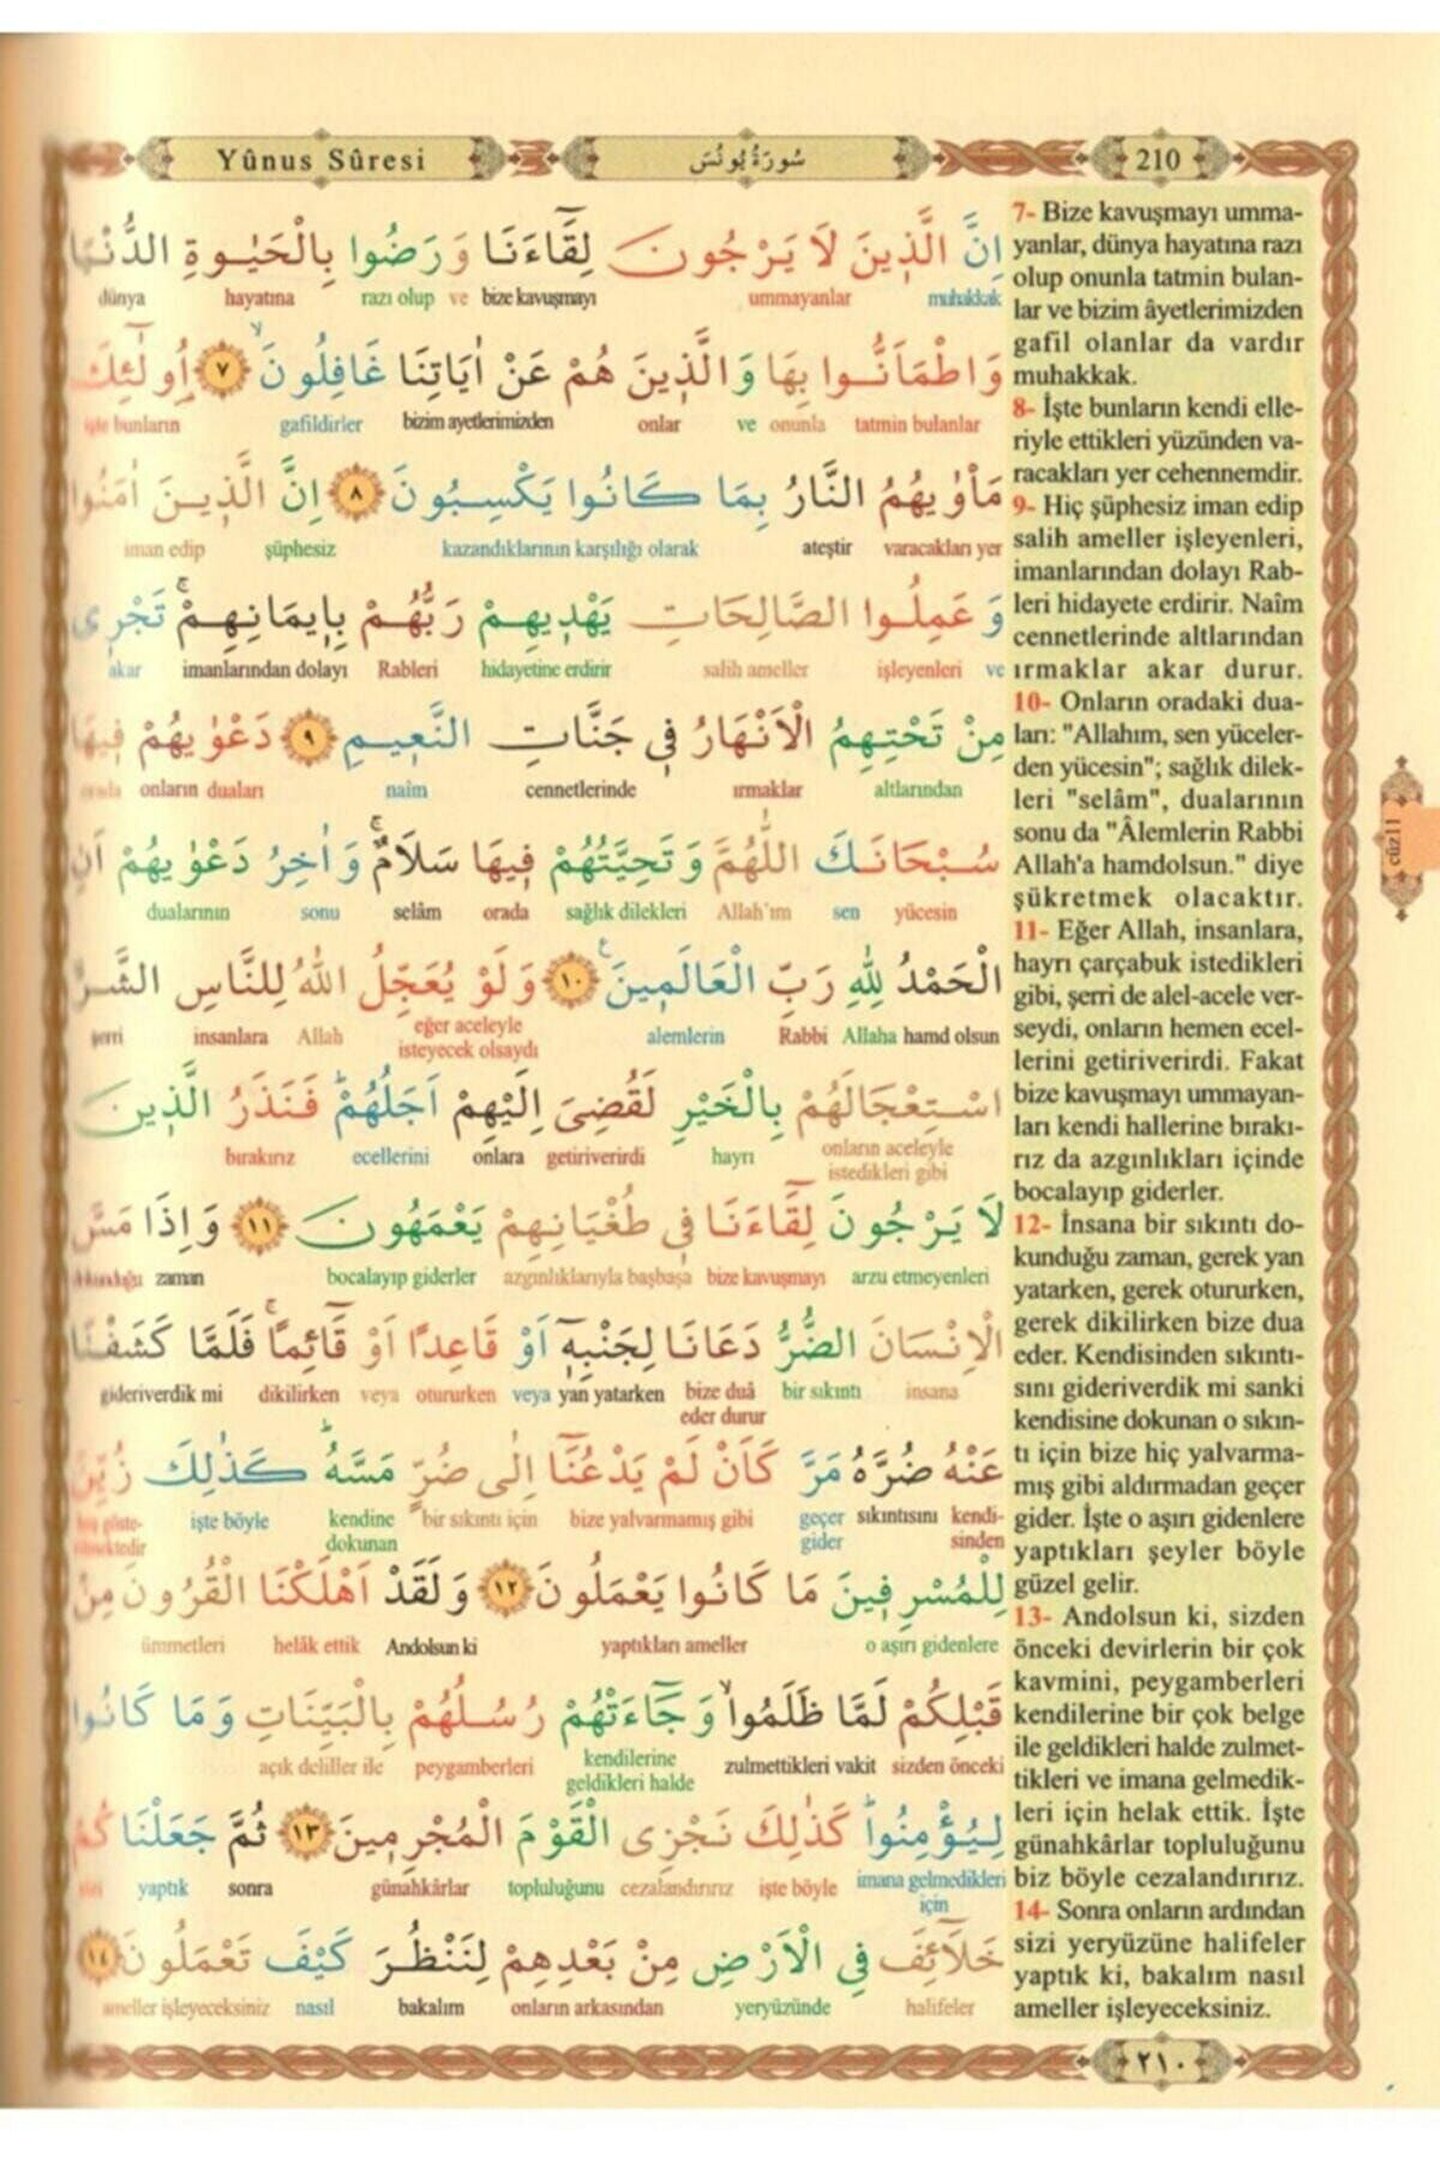 Yûnus Sûresi
سُورَةُ يُونُسَ
210
اِنَّ الَّذِينَ لَا يَرْجُونَ لِقَٓاءَنَا وَرَضُوا بِالْحَيٰوةِ الدُّنْيَا
muhakkak ummayanlar bize kavuşmayı ve razı olup hayatına dünya
وَاطْمَاَنُّوا بِهَا وَالَّذِينَ هُمْ عَنْ اٰيَاتِنَا غَافِلُونَۙ ﴿٧﴾ اُو۬لٰٓئِكَ
tatmin bulanlar onunla ve onlar bizim ayetlerimizden gafildirler işte bunların
مَأْوٰيهُمُ النَّارُ بِمَا كَانُوا يَكْسِبُونَ ﴿٨﴾ اِنَّ الَّذِينَ اٰمَنُوا
varacakları yer ateştir kazandıklarının karşılığı olarak şüphesiz iman edip
وَعَمِلُوا الصَّالِحَاتِ يَهْدِيهِمْ رَبُّهُمْ بِاِيمَانِهِمْۚ تَجْرِى
ve işleyenleri salih ameller hidayetine erdirir Rableri imanlarından dolayı akar
مِنْ تَحْتِهِمُ الْاَنْهَارُ فِى جَنَّاتِ النَّعِيمِ ﴿٩﴾ دَعْوٰيهُمْ فِيهَا
altlarından ırmaklar cennetlerinde naîm duaları onların orada
سُبْحَانَكَ اللّٰهُمَّ وَتَحِيَّتُهُمْ فِيهَا سَلَامٌۚ وَاٰخِرُ دَعْوٰيهُمْ اَنِ
yücesin sen Allah'ım sağlık dilekleri orada selâm sonu dualarının
الْحَمْدُ لِلّٰهِ رَبِّ الْعَالَمِينَ۟ ﴿١٠﴾ وَلَوْ يُعَجِّلُ اللّٰهُ لِلنَّاسِ الشَّرَّ
hamd olsun Allaha Rabbi alemlerin eğer aceleyle isteyecek olsaydı Allah insanlara şerri
اسْتِعْجَالَهُمْ بِالْخَيْرِ لَقُضِىَ اِلَيْهِمْ اَجَلُهُمْۜ فَنَذَرُ الَّذِينَ
onların aceleyle istedikleri gibi hayrı getiriverirdi onlara ecellerini bırakırız
لَا يَرْجُونَ لِقَٓاءَنَا فِى طُغْيَانِهِمْ يَعْمَهُونَ ﴿١١﴾ وَاِذَا مَسَّ
arzu etmeyenleri bize kavuşmayı azgınlıklarıyla başbaşa bocalayıp giderler zaman dokunduğu
الْاِنْسَانَ الضُّرُّ دَعَانَا لِجَنْبِهٓ اَوْ قَاعِدًا اَوْ قَٓائِمًاۚ فَلَمَّا كَشَفْنَا
insana bir sıkıntı bize duâ eder durur yan yatarken veya otururken veya dikilirken gideriverdik mi
عَنْهُ ضُرَّهُ مَرَّ كَاَنْ لَمْ يَدْعُنَٓا اِلٰى ضُرٍّ مَسَّهُۜ كَذٰلِكَ زُيِّنَ
kendisinden sıkıntısını geçer gider bize yalvarmamış gibi bir sıkıntı için kendine dokunan işte böyle
لِلْمُسْرِفِينَ مَا كَانُوا يَعْمَلُونَ ﴿١٢﴾ وَلَقَدْ اَهْلَكْنَا الْقُرُونَ مِنْ
o aşırı gidenlere yaptıkları ameller Andolsun ki helâk ettik ümmetleri
قَبْلِكُمْ لَمَّا ظَلَمُواۙ وَجَٓاءَتْهُمْ رُسُلُهُمْ بِالْبَيِّنَاتِ وَمَا كَانُوا
sizden önceki zulmettikleri vakit kendilerine geldikleri halde peygamberleri açık deliller ile
لِيُؤْمِنُواۜ كَذٰلِكَ نَجْزِى الْقَوْمَ الْمُجْرِمِينَ ﴿١٣﴾ ثُمَّ جَعَلْنَاكُمْ
imana gelmedikleri için işte böyle cezalandırırız topluluğunu günahkârlar sonra yaptık sizi
خَلَٓائِفَ فِى الْاَرْضِ مِنْ بَعْدِهِمْ لِنَنْظُرَ كَيْفَ تَعْمَلُونَ ﴿١٤﴾
halifeler yeryüzünde onların arkasından bakalım nasıl ameller işleyeceksiniz
7- Bize kavuşmayı umma-
yanlar, dünya hayatına razı
olup onunla tatmin bulan-
lar ve bizim âyetlerimizden
gafil olanlar da vardır
muhakkak.
8- İşte bunların kendi elle-
riyle ettikleri yüzünden va-
racakları yer cehennemdir.
9- Hiç şüphesiz iman edip
salih ameller işleyenleri,
imanlarından dolayı Rab-
leri hidayete erdirir. Naîm
cennetlerinde altlarından
ırmaklar akar durur.
10- Onların oradaki dua-
ları: "Allahım, sen yüceler-
den yücesin"; sağlık dilek-
leri "selâm", dualarının
sonu da "Âlemlerin Rabbi
Allah'a hamdolsun." diye
şükretmek olacaktır.
11- Eğer Allah, insanlara,
hayrı çarçabuk istedikleri
gibi, şerri de alel-acele ver-
seydi, onların hemen ecel-
lerini getiriverirdi. Fakat
bize kavuşmayı ummayan-
ları kendi hallerine bırakı-
rız da azgınlıkları içinde
bocalayıp giderler.
12- İnsana bir sıkıntı do-
kunduğu zaman, gerek yan
yatarken, gerek otururken,
gerek dikilirken bize dua
eder. Kendisinden sıkıntı-
sını gideriverdik mi sanki
kendisine dokunan o sıkın-
tı için bize hiç yalvarma-
mış gibi aldırmadan geçer
gider. İşte o aşırı gidenlere
yaptıkları şeyler böyle
güzel gelir.
13- Andolsun ki, sizden
önceki devirlerin bir çok
kavmini, peygamberleri
kendilerine bir çok belge
ile geldikleri halde zulmet-
tikleri ve imana gelmedik-
leri için helak ettik. İşte
günahkârlar topluluğunu
biz böyle cezalandırırız.
14- Sonra onların ardından
sizi yeryüzüne halifeler
yaptık ki, bakalım nasıl
ameller işleyeceksiniz.
cüz11
٢١٠